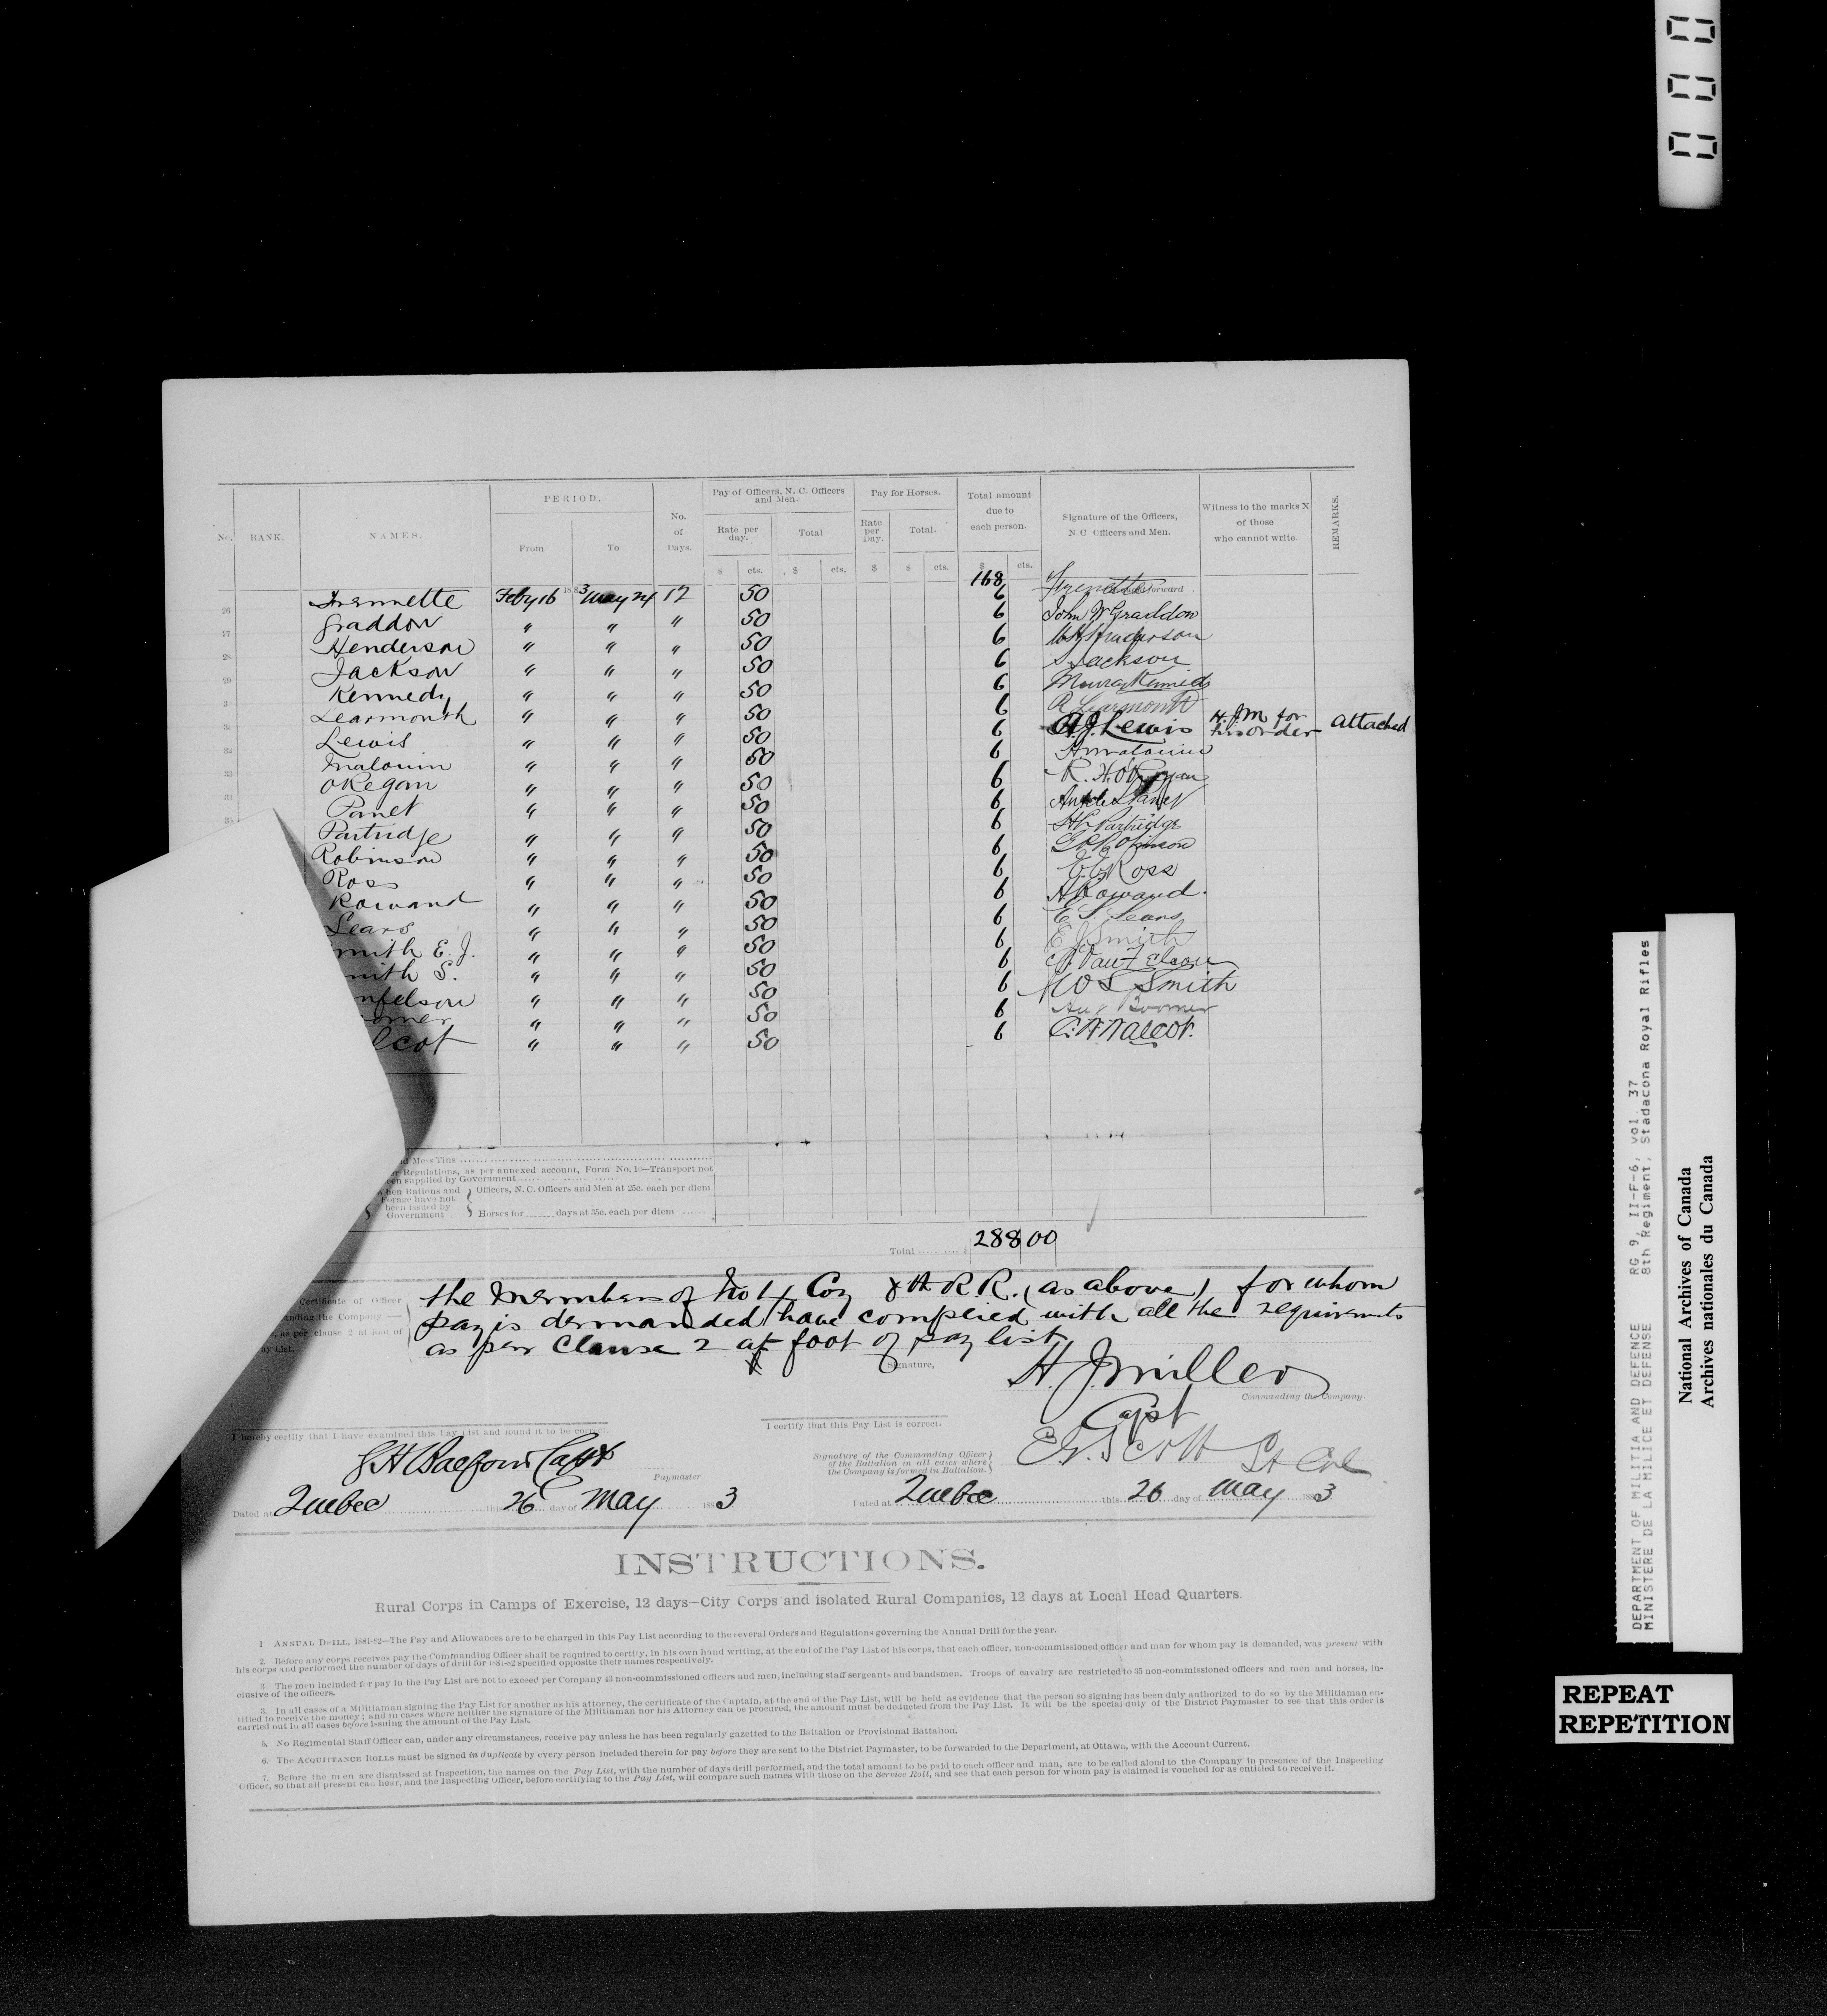 000
No. RANK. NAMES. PERIOD. From To No. of Days. Pay of Officers, N. C. Officers and Men. Rate per day. Total Pay for Horses. Rate per Day. Total. Total amount due to each person. Signature of the Officers, N C Officers and Men. Witness to the marks X of those who cannot write. REMARKS.
$ cts. $ cts. $ $ cts. $ cts.
168 forward
26 Frennette Feby 16 1883 May 24 12 50 6 Frenette
27 Graddon " " " 50 6 John W Graddon
28 Henderson " " " 50 6 Henderson
29 Jackson " " " 50 6 S. Jackson
Kennedy " " " 50 6 Murray Kennedy
Learmonth " " " 50 6 R Learmonth
32 Lewis " " " 50 6 A.J. Lewis H.J.M for his order attached
33 Malouin " " " 50 6 A Malouin
34 OKegan " " " 50 6 R. H. O'Regan
35 Panet " " " 50 6 Panet
Partridge " " " 50 6 Partridge
Robinson " " " 50 6 Robinson
Ross " " " 50 6 Ross
Rowand " " " 50 6 A Rowand.
Sears " " " 50 6 E. S. Sears
mith E. J. " " " 50 6 E J Smith
mith S. " " " 50 6 Vanfelson
nfelson " " " 50 6 W S Smith
omer " " " 50 6 Aug Boomer
lcot " " " 50 6 C. W. Walcot.
d Mess Tins
er Regulations, as per annexed account, Form No. 10—Transport not
een supplied by Government
hen Rations and Forage have not been issued by Government
Officers, N. C. Officers and Men at 25c. each per diem
Horses for days at 35c. each per diem
Total 288 00
Certificate of Officer
anding the Company —
, as per clause 2 at foot of
ay List.
the members of No 4 Coy 8th R.R. (as above) for whom
pay is demanded, have complied with all the requirments
as per Clause 2 at foot of pay list
Signature, H. J. Miller
Commanding the Company.
Capt
I hereby certify that I have examined this Pay List and found it to be correct.
Balfour Capt
Paymaster
Dated at Quebec this 26 day of May 1883
I certify that this Pay List is correct.
Signature of the Commanding Officer of the Battalion in all cases where the Company is formed in Battalion.
Scott Lt Col
Dated at Quebec this 26 day of May 1883
INSTRUCTIONS.
Rural Corps in Camps of Exercise, 12 days—City Corps and isolated Rural Companies, 12 days at Local Head Quarters.
1 ANNUAL DRILL, 1881-82—The Pay and Allowances are to be charged in this Pay List according to the several Orders and Regulations governing the Annual Drill for the year.
2. Before any corps receives pay the Commanding Officer shall be required to certify, in his own hand writing, at the end of the Pay List of his corps, that each officer, non-commissioned officer and man for whom pay is demanded, was present with
his corps and performed the number of days of drill for 1881-82 specified opposite their names respectively.
3 The men included for pay in the Pay List are not to exceed per Company 43 non-commissioned officers and men, including staff sergeants and bandsmen. Troops of cavalry are restricted to 35 non-commissioned officers and men and horses, in-
clusive of the officers.
3. In all cases of a Militiaman signing the Pay List for another as his attorney, the certificate of the Captain, at the end of the Pay List, will be held as evidence that the person so signing has been duly authorized to do so by the Militiaman en-
titled to receive the money; and in cases where neither the signature of the Militiaman nor his Attorney can be procured, the amount must be deducted from the Pay List. It will be the special duty of the District Paymaster to see that this order is
carried out in all cases before issuing the amount of the Pay List.
5. No Regimental Staff Officer can, under any circumstances, receive pay unless he has been regularly gazetted to the Battalion or Provisional Battalion.
6. The ACQUITTANCE ROLLS must be signed in duplicate by every person included therein for pay before they are sent to the District Paymaster, to be forwarded to the Department, at Ottawa, with the Account Current.
7. Before the men are dismissed at Inspection, the names on the Pay List, with the number of days drill performed, and the total amount to be paid to each officer and man, are to be called aloud to the Company in presence of the Inspecting
Officer, so that all present can hear, and the Inspecting Officer, before certifying to the Pay List, will compare such names with those on the Service Roll, and see that each person for whom pay is claimed is vouched for as entitled to receive it.
DEPARTMENT OF MILITIA AND DEFENCE RG 9, II-F-6, vol. 37
MINISTERE DE LA MILICE ET DEFENSE 8th Regiment, Stadacona Royal Rifles
National Archives of Canada
Archives nationales du Canada
REPEAT
REPETITION